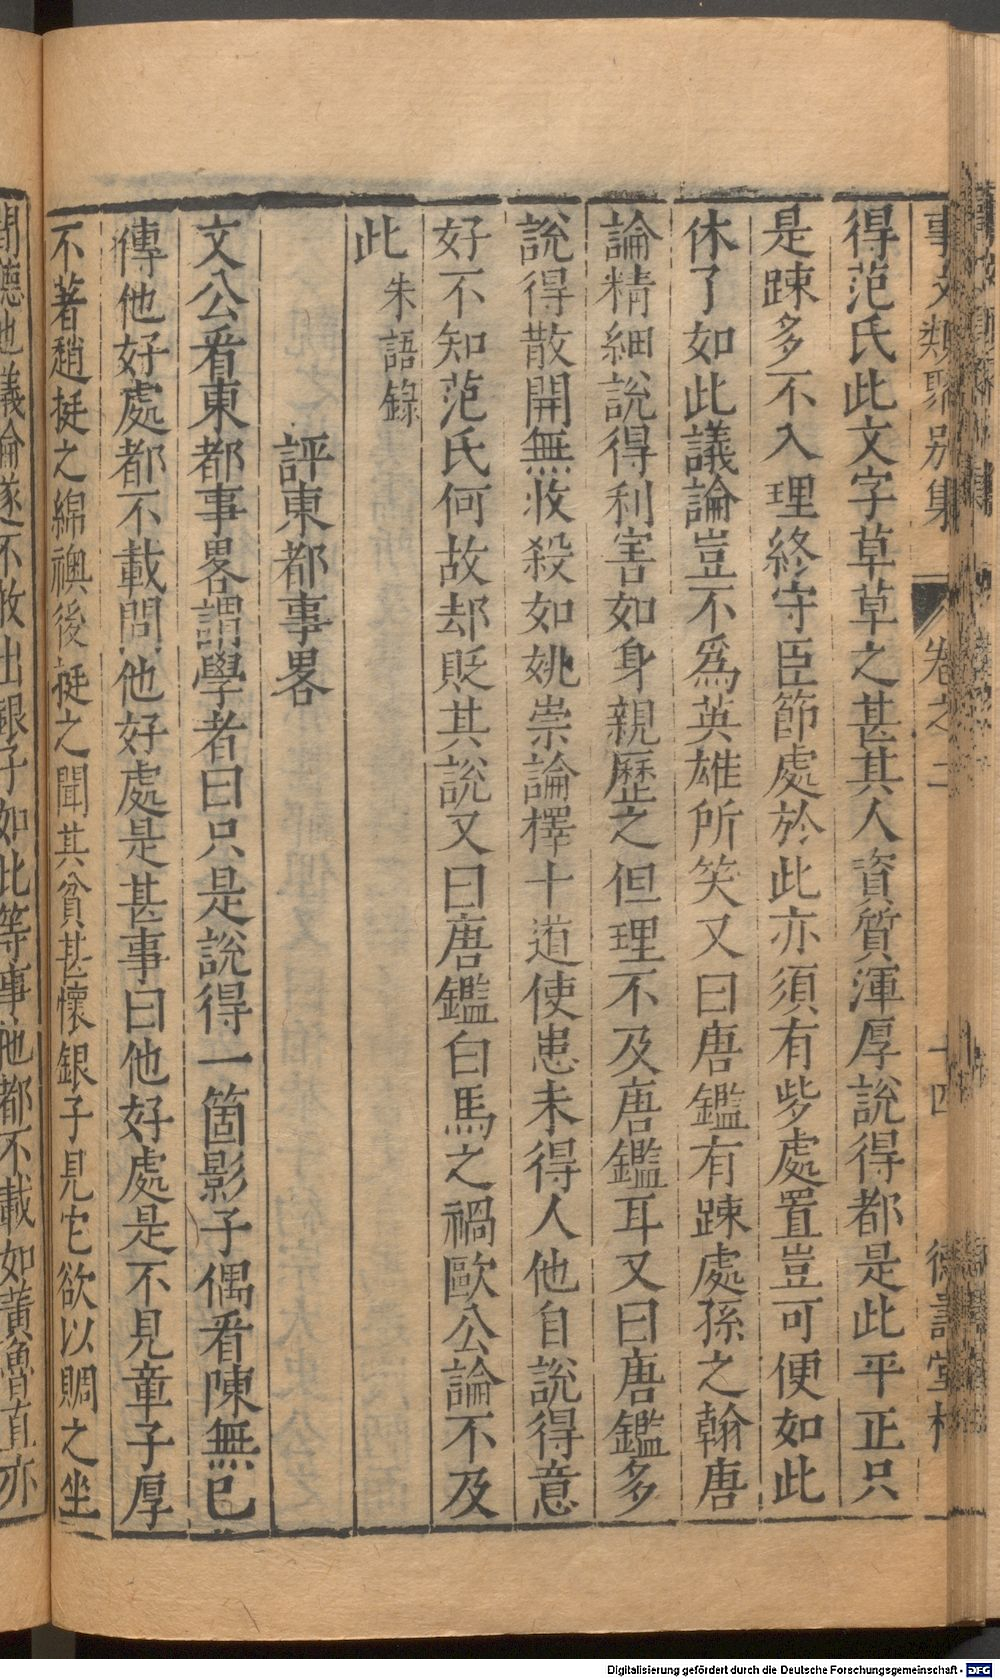 事文類聚别集 卷之二 十四 德壽堂梓
得范氏此文字草草之甚其人資質渾厚說得都是此平正只
是踈多不入理終守臣節處於此亦須有些處置豈可便如此
休了如此議論豈不爲英雄所笑又曰唐鑑有踈處孫之翰唐
論精細說得利害如身親歷之但理不及唐鑑耳又曰唐鑑多
說得散開無收殺如姚崇論擇十道使患未得人他自說得意
好不知范氏何故却貶其說又曰唐鑑白馬之禍歐公論不及
此 朱語錄
評東都事畧
文公看東都事畧謂學者曰只是說得一箇影子偶看陳無已
傳他好處都不載問他好處是甚事曰他好處是不見章子厚
不著趙挺之綿襖後挺之聞其貧甚懷銀子見它欲以賙之坐
間聽他議論遂不敢出銀子如此等事他都不載如黃魯直亦
Digitalisierung gefördert durch die Deutsche Forschungsgemeinschaft - DFG